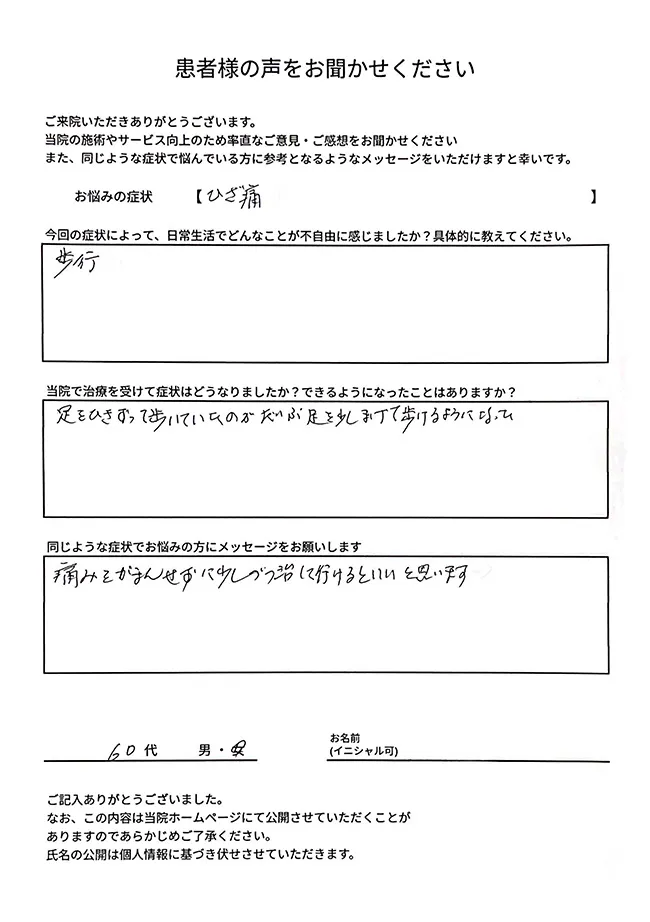 患者様の声をお聞かせください
ご来院いただきありがとうございます。
当院の施術やサービス向上のため率直なご意見・ご感想をお聞かせください
また、同じような症状で悩んでいる方に参考となるようなメッセージをいただけますと幸いです。
お悩みの症状 【ひざ痛 】
今回の症状によって、日常生活でどんなことが不自由に感じましたか？具体的に教えてください。
歩行
当院で治療を受けて症状はどうなりましたか？できるようになったことはありますか？
足をひきずって歩いていたのがだいぶ足を少しまげて歩けるようになった
同じような症状でお悩みの方にメッセージをお願いします
痛みをがまんせずに少しづつ治して行けるといいと思います
60代 男・女
お名前
(イニシャル可)
ご記入ありがとうございました。
なお、この内容は当院ホームページにて公開させていただくことが
ありますのであらかじめご了承ください。
氏名の公開は個人情報に基づき伏せさせていただきます。